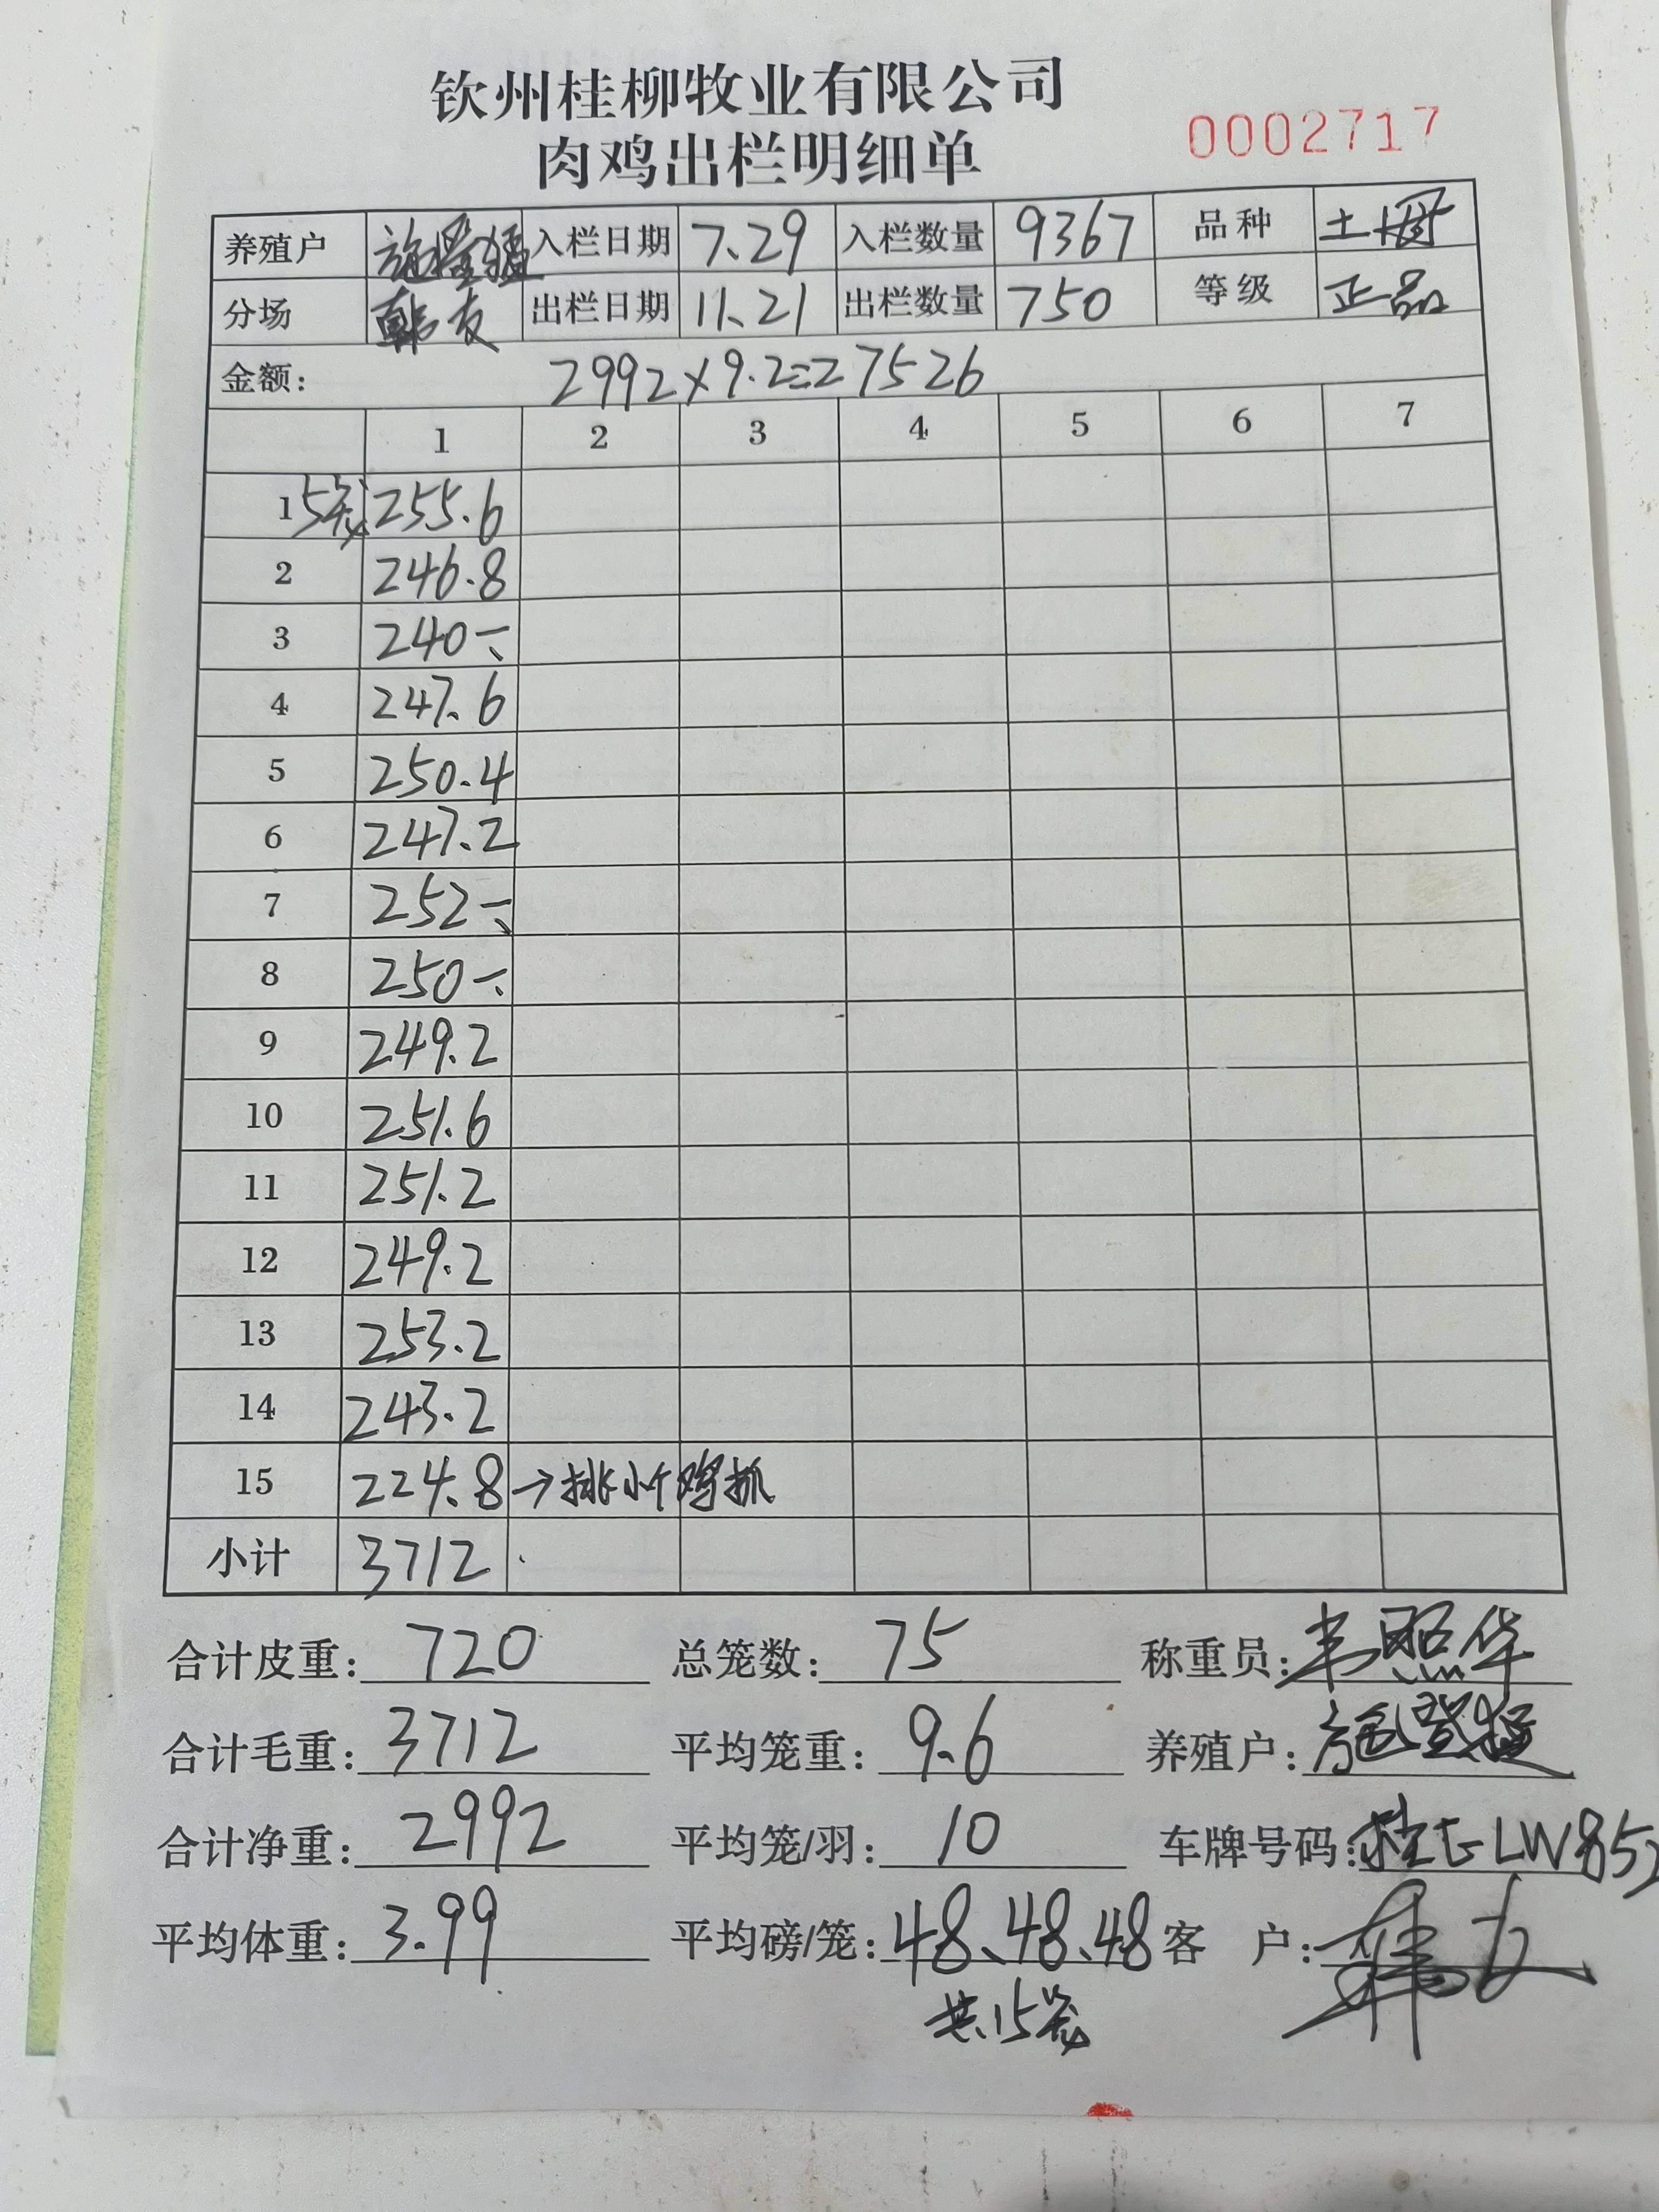 钦州桂柳牧业有限公司
肉鸡出栏明细单
0002717
养殖户 入栏日期 7.29 入栏数量 9367 品种 土
分场 韩友 出栏日期 11.21 出栏数量 750 等级 正品
金额: 2992×9.2=27526
1 2 3 4 5 6 7
1 5笼 255.6
2 246.8
3 240-
4 247.6
5 250.4
6 247.2
7 252-
8 250-
9 249.2
10 251.6
11 251.2
12 249.2
13 253.2
14 243.2
15 224.8→挑小个鸡抓
小计 3712
合计皮重: 720 总笼数: 75 称重员: 韦照华
合计毛重: 3712 平均笼重: 9.6 养殖户: 施登
合计净重: 2992 平均笼/羽: 10 车牌号码: 桂ELW85
平均体重: 3.99 平均磅/笼: 48、48、48 客 户: 韩友
共15笼